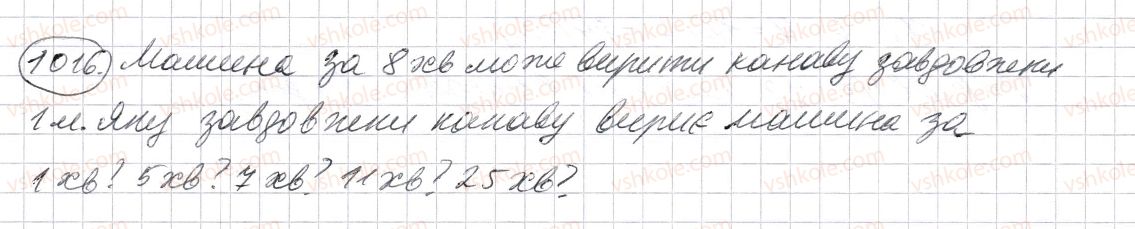 1016. Машина за 8 хв може вирити канаву завдовжки
1 м. Яку завдовжки канаву вириє машина за
1 хв? 5 хв? 7 хв? 11 хв? 25 хв?